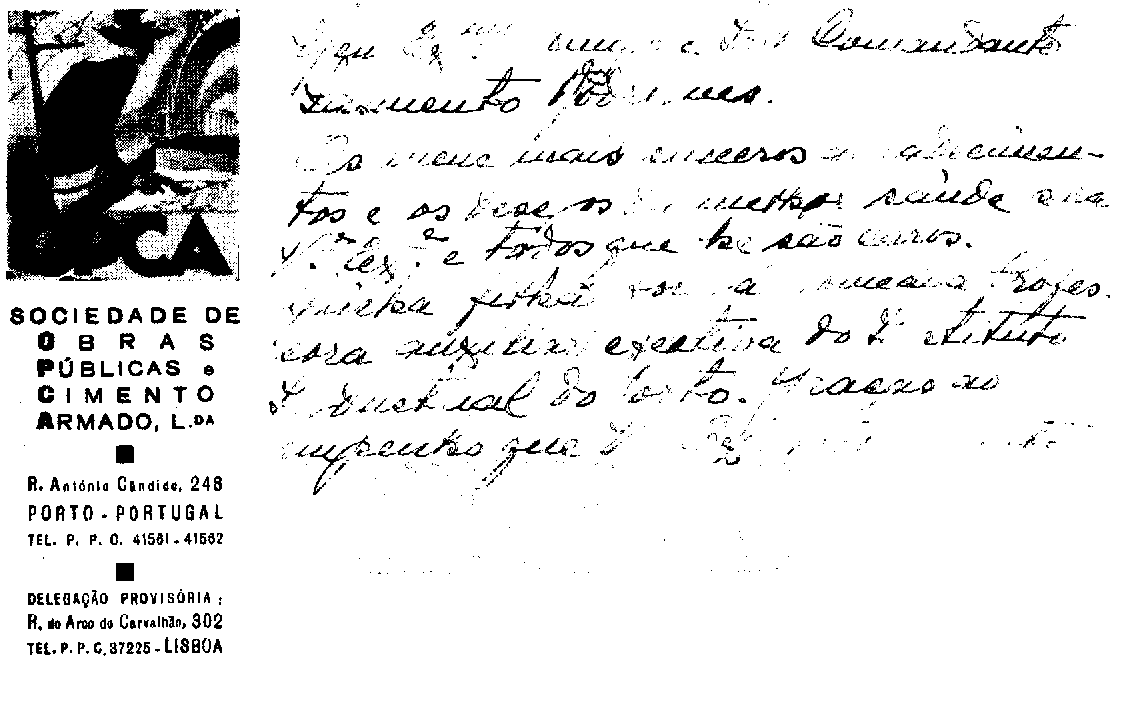 OPCA
SOCIEDADE DE
OBRAS
PÚBLICAS e
CIMENTO
ARMADO, L.DA
R. António Candido, 248
PORTO - PORTUGAL
TEL. P. P. C. 41561 - 41562
DELEGAÇÃO PROVISÓRIA:
R. do Arco do Carvalhão, 302
TEL. P. P. C. 37225 - LISBOA
Meu Ex.mo amigo e Snr. Comandante
Sarmento Rodrigues.
Os meus mais sinceros agradecimen-
tos e os desejos da melhor saúde para
V.ª Ex.ª e todos que lhe são caros.
Minha filha foi já nomeada Profes-
sora auxiliar efectiva do Instituto
Industrial do Porto. Graças ao
empenho que V. Ex.